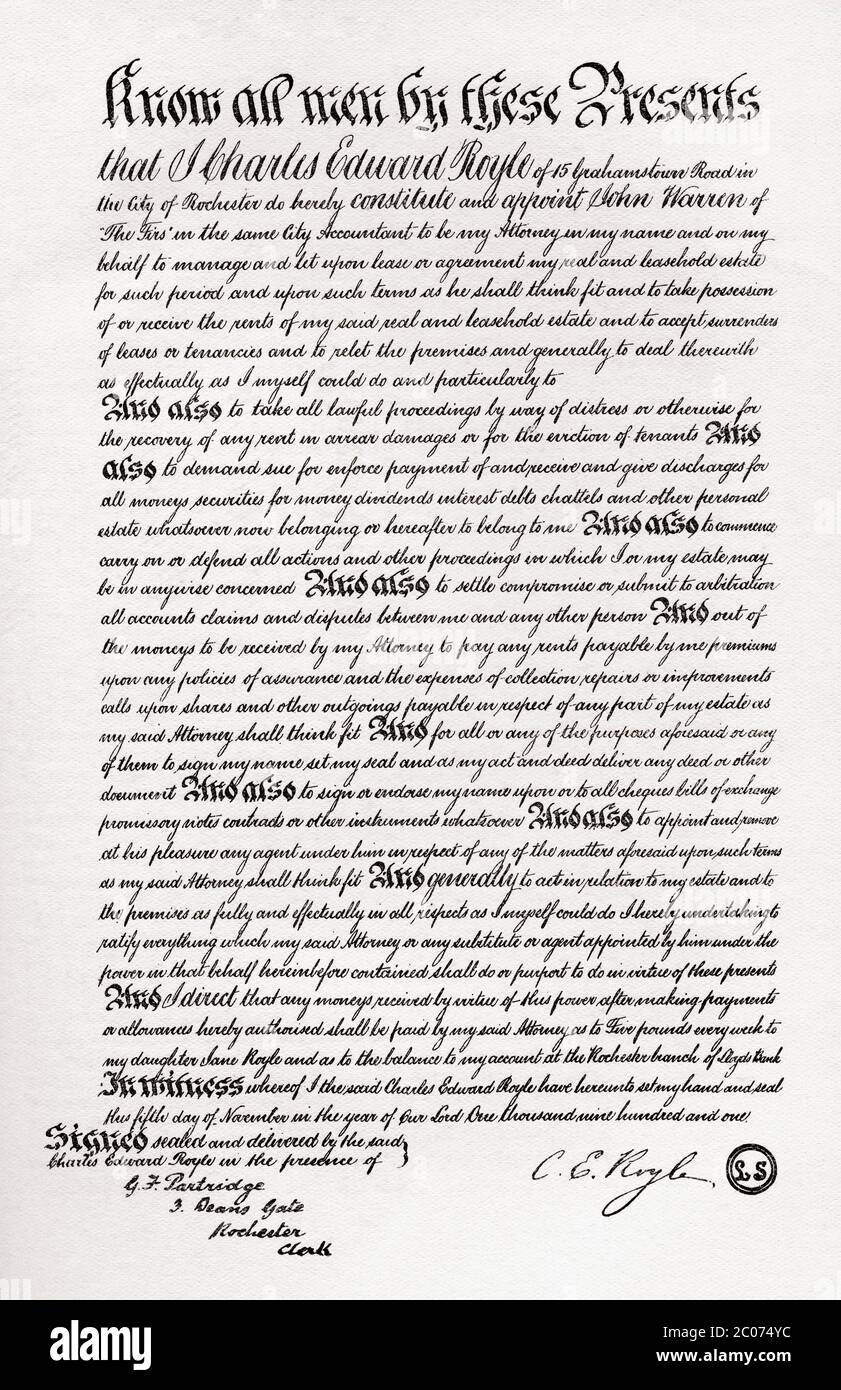 Know all men by these Presents
that I Charles Edward Royle of 15 Grahamstown Road in
the City of Rochester do hereby constitute and appoint John Warren of
"The Firs" in the same City Accountant to be my Attorney in my name and on my
behalf to manage and let upon lease or agreement my real and leasehold estate
for such period and upon such terms as he shall think fit and to take possession
of or receive the rents of my said real and leasehold estate and to accept surrenders
of leases or tenancies and to relet the premises and generally to deal therewith
as effectually as I myself could do and particularly to
And also to take all lawful proceedings by way of distress or otherwise for
the recovery of any rent in arrear damages or for the eviction of tenants And
also to demand sue for enforce payment of and receive and give discharges for
all moneys securities for money dividends interest debts chattels and other personal
estate whatsoever now belonging or hereafter to belong to me And also to commence
carry on or defend all actions and other proceedings in which I or my estate may
be in anywise concerned And also to settle compromise or submit to arbitration
all accounts claims and disputes between me and any other person And out of
the moneys to be received by my Attorney to pay any rents payable by me premiums
upon any policies of assurance and the expenses of collection repairs or improvements
calls upon shares and other outgoings payable in respect of any part of my estate as
my said Attorney shall think fit And for all or any of the purposes aforesaid or any
of them to sign my name set my seal and as my act and deed deliver any deed or other
document And also to sign or endorse my name upon or to all cheques bills of exchange
promissory notes contracts or other instruments whatsoever And also to appoint and remove
at his pleasure any agent under him in respect of any of the matters aforesaid upon such terms
as my said Attorney shall think fit And generally to act in relation to my estate and to
the premises as fully and effectually in all respects as I myself could do I hereby undertaking to
ratify everything which my said Attorney or any substitute or agent appointed by him under the
power in that behalf hereinbefore contained shall do or purport to do in virtue of these presents
And I direct that any moneys received by virtue of this power after making payments
or allowances hereby authorised shall be paid by my said Attorney as to Five pounds every week to
my daughter Jane Royle and as to the balance to my account at the Rochester branch of Lloyds Bank
In witness whereof I the said Charles Edward Royle have hereunto set my hand and seal
this fifth day of November in the year of Our Lord One thousand nine hundred and one.
Signed sealed and delivered by the said
Charles Edward Royle in the presence of
G. F. Partridge
3. Deans Gate
Rochester
Clerk
C. E. Royle
L S
alamy
Image ID: 2C074YC
www.alamy.com